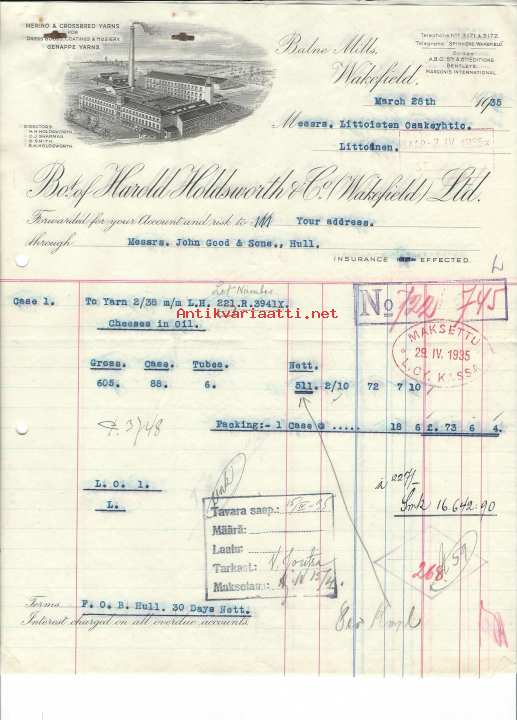 MERINO & CROSSBRED YARNS
FOR
DRESS GOODS, COATINGS & HOSIERY
GENAPPE YARNS.
Telephone Nos 3171 & 3172.
Telegrams SPINNERS, WAKEFIELD
Codes
A.B.C. 5th & 6th EDITIONS
BENTLEYS
MARCONIS INTERNATIONAL.
Balne Mills,
Wakefield.
March 28th 1935
DIRECTORS
H. H. HOLDSWORTH
O. J. SHARMAN
G. SMITH
B. H. HOLDSWORTH
Messrs. Littoisten Osakeyhtio.
Littoinen.
IV. 1935
Bot. of Harold Holdsworth & Co. (Wakefield) Ltd.
Forwarded for your Account and risk to Your address.
through Messrs. John Good & Sons., Hull.
INSURANCE EFFECTED.
L
Lot Number
Case 1. To Yarn 2/36 m/m L.H. 221.R.3941X.
No 722 745
Antikvariaatti.net
Cheeses in Oil.
MAKSETTU
29. IV. 1935
L. OY. KASSA
Gross. Case. Tubes. Nett.
605. 88. 6. 511. 2/10 72 7 10
Packing:- 1 Case @ ..... 18 6 £. 73 6 4.
F. 3748
L. O. 1.
L.
à 227/-
Smk 16.642.90
Tavara saap.:
Määrä:
Laatu:
Tarkast:
Maksetaan:
268
A 59
Terms F. O. B. Hull. 30 Days Nett.
Interest charged on all overdue accounts.